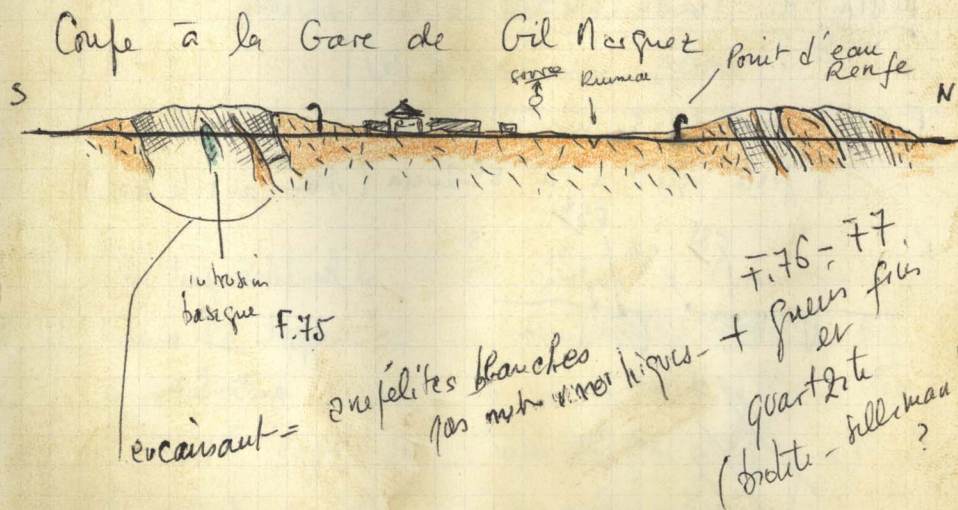 Coupe à la Gare de Gil Marquez
S
source
Ruisseau
Point d'eau
Renfe
N
intrusion
basique F.75
encaissant = ampélites blanches
pas métamorphiques - + gneiss fins
F.76 - 77
et
quartzite
(biotite - silliman
?